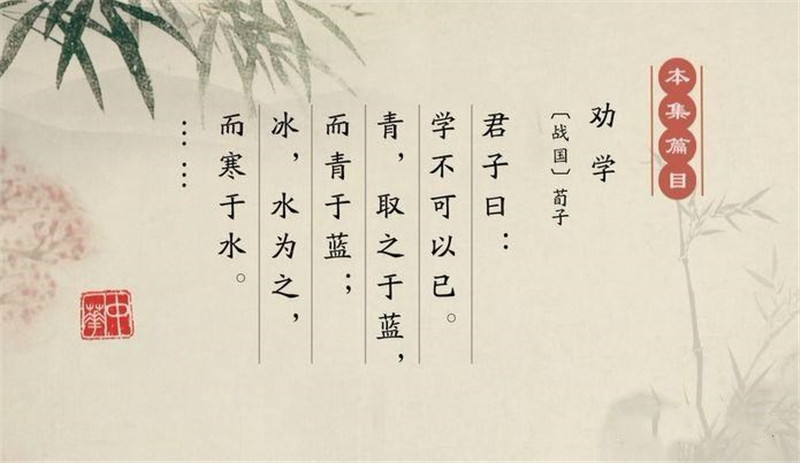 本集篇目
劝学
〔战国〕荀子
君子曰：
学不可以已。
青，取之于蓝，
而青于蓝；
冰，水为之，
而寒于水。
……
中華